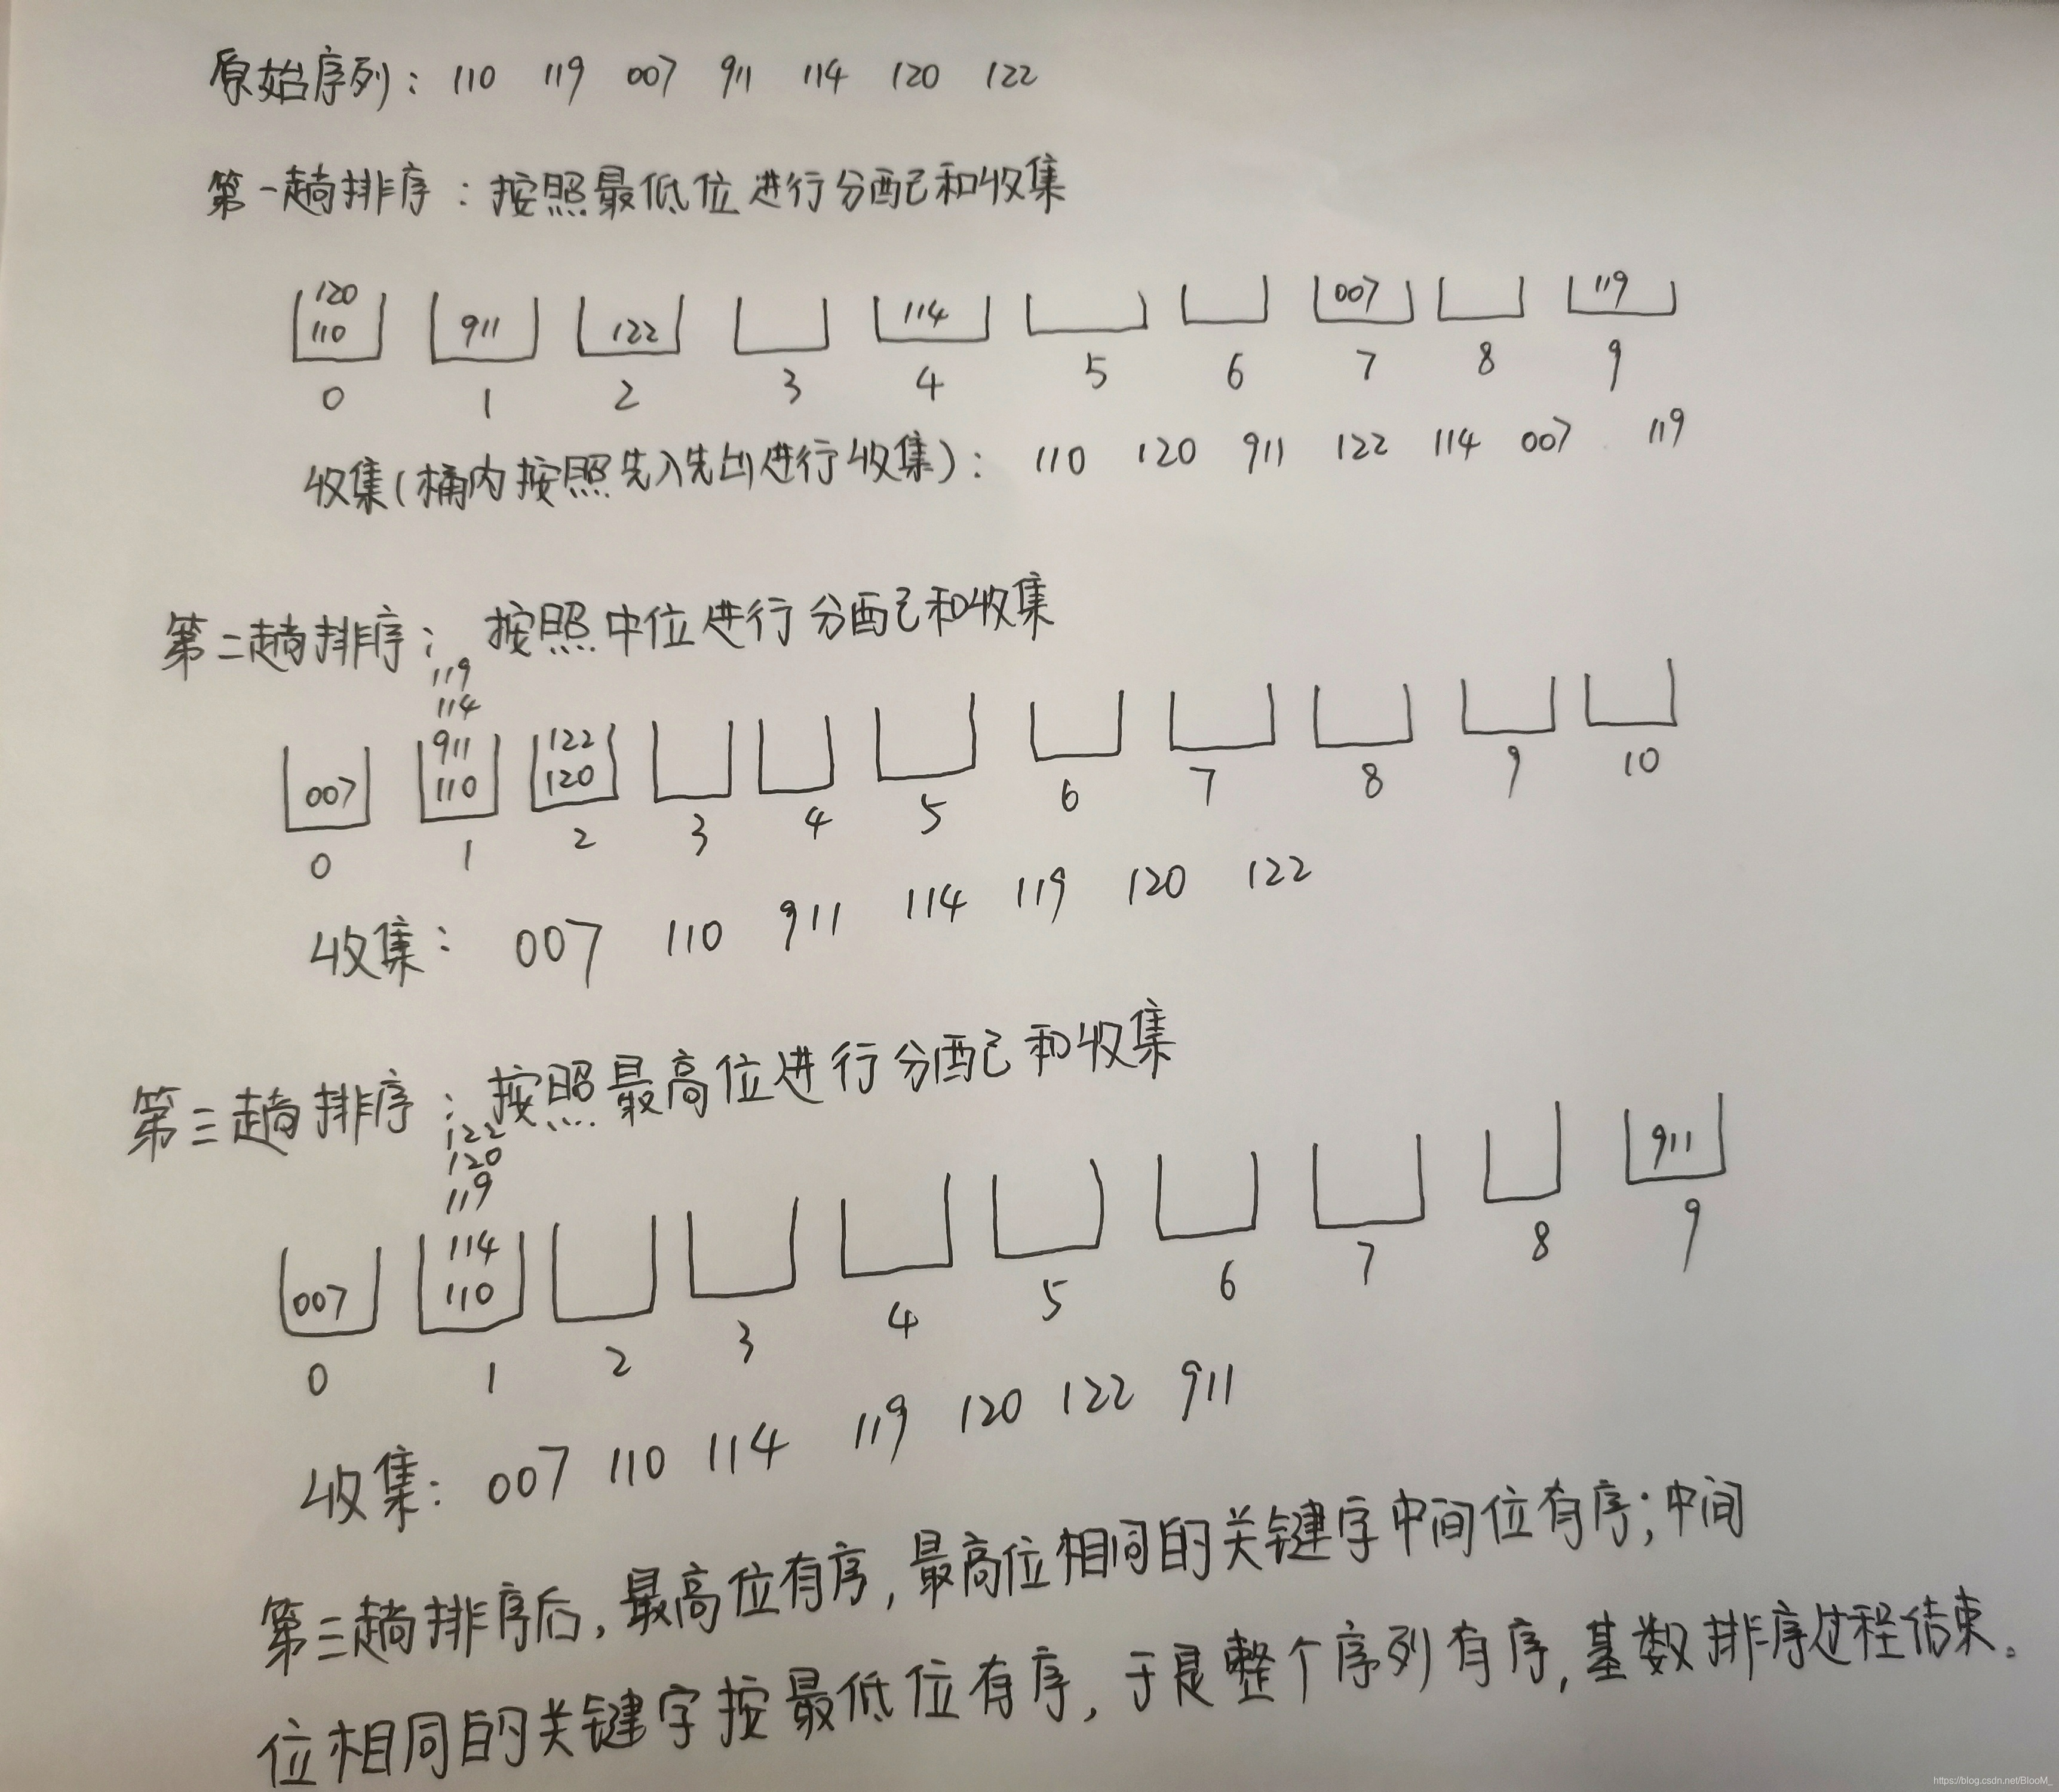 原始序列： 110 119 007 911 114 120 122
第一趟排序：按照最低位进行分配和收集
120
110 911 122 114 007 119
0 1 2 3 4 5 6 7 8 9
收集(桶内按照先入先出进行收集)： 110 120 911 122 114 007 119
第二趟排序： 按照中位进行分配和收集
119
114
911 122
007 110 120
0 1 2 3 4 5 6 7 8 9 10
收集： 007 110 911 114 119 120 122
第三趟排序：按照最高位进行分配和收集
122
120
119
114 911
007 110
0 1 2 3 4 5 6 7 8 9
收集： 007 110 114 119 120 122 911
第三趟排序后，最高位有序，最高位相同的关键字中间位有序；中间
位相同的关键字按最低位有序，于是整个序列有序，基数排序过程结束。
https://blog.csdn.net/BlooM_